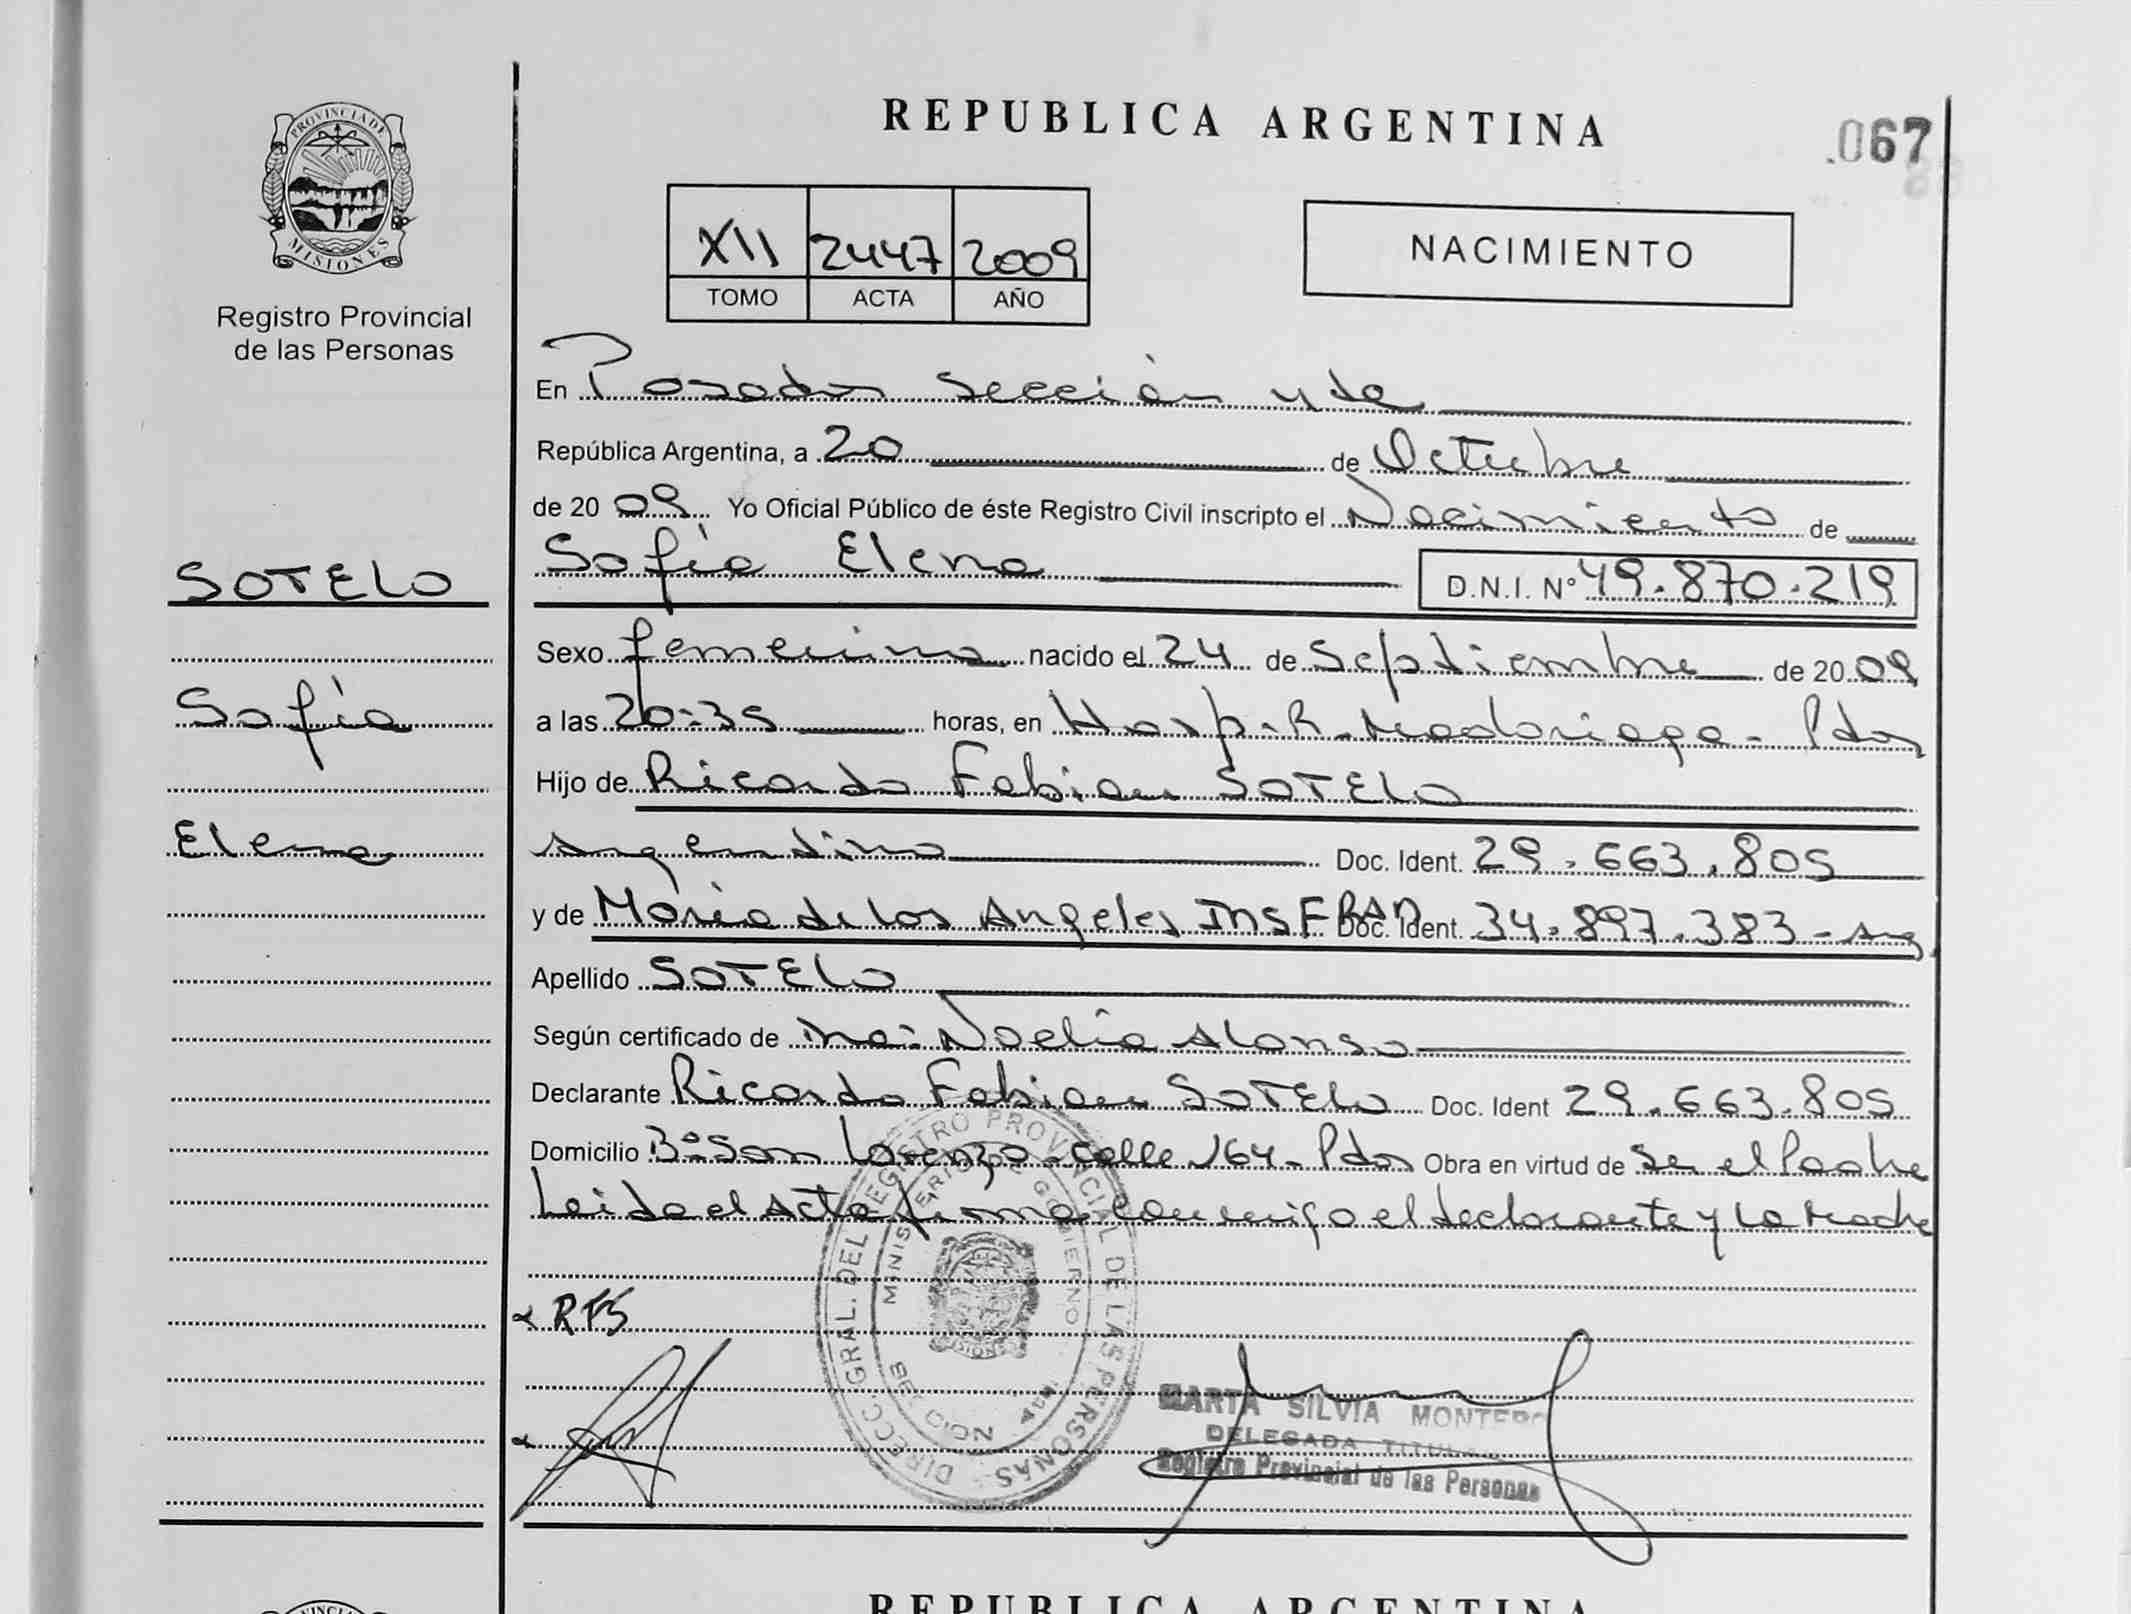 REPUBLICA ARGENTINA
067
PROVINCIA DE
MISIONES
Registro Provincial
de las Personas
XII 2447 2009
TOMO ACTA AÑO
NACIMIENTO
En Posadas Sección 4ta
República Argentina, a 20 de Octubre
de 2009 Yo Oficial Público de éste Registro Civil inscripto el Nacimiento de
Sofía Elena D.N.I. Nº 49.870.219
SOTELO
Sofía
Elena
Sexo femenino nacido el 24 de Septiembre de 2009
a las 20:35 horas, en Hosp. R. Madariaga - Pdas
Hijo de Ricardo Fabian SOTELO
argentino Doc. Ident. 29.663.805
y de María de los Angeles INSFRAN Doc. Ident. 34.897.383 - arg.
Apellido SOTELO
Según certificado de Noelia Alonso
Declarante Ricardo Fabian SOTELO Doc. Ident 29.663.805
Domicilio Bº San Lorenzo - calle 164 - Pdas Obra en virtud de Ser el Padre
Leida el Acta firma conmigo el declarante y La Madre
RFS
DIRECC. GRAL. DEL REGISTRO PROVINCIAL DE LAS PERSONAS
MINISTERIO DE GOBIERNO
MARTA SILVIA MONTERO
DELEGADA TITULAR
Registro Provincial de las Personas
REPUBLICA ARGENTINA